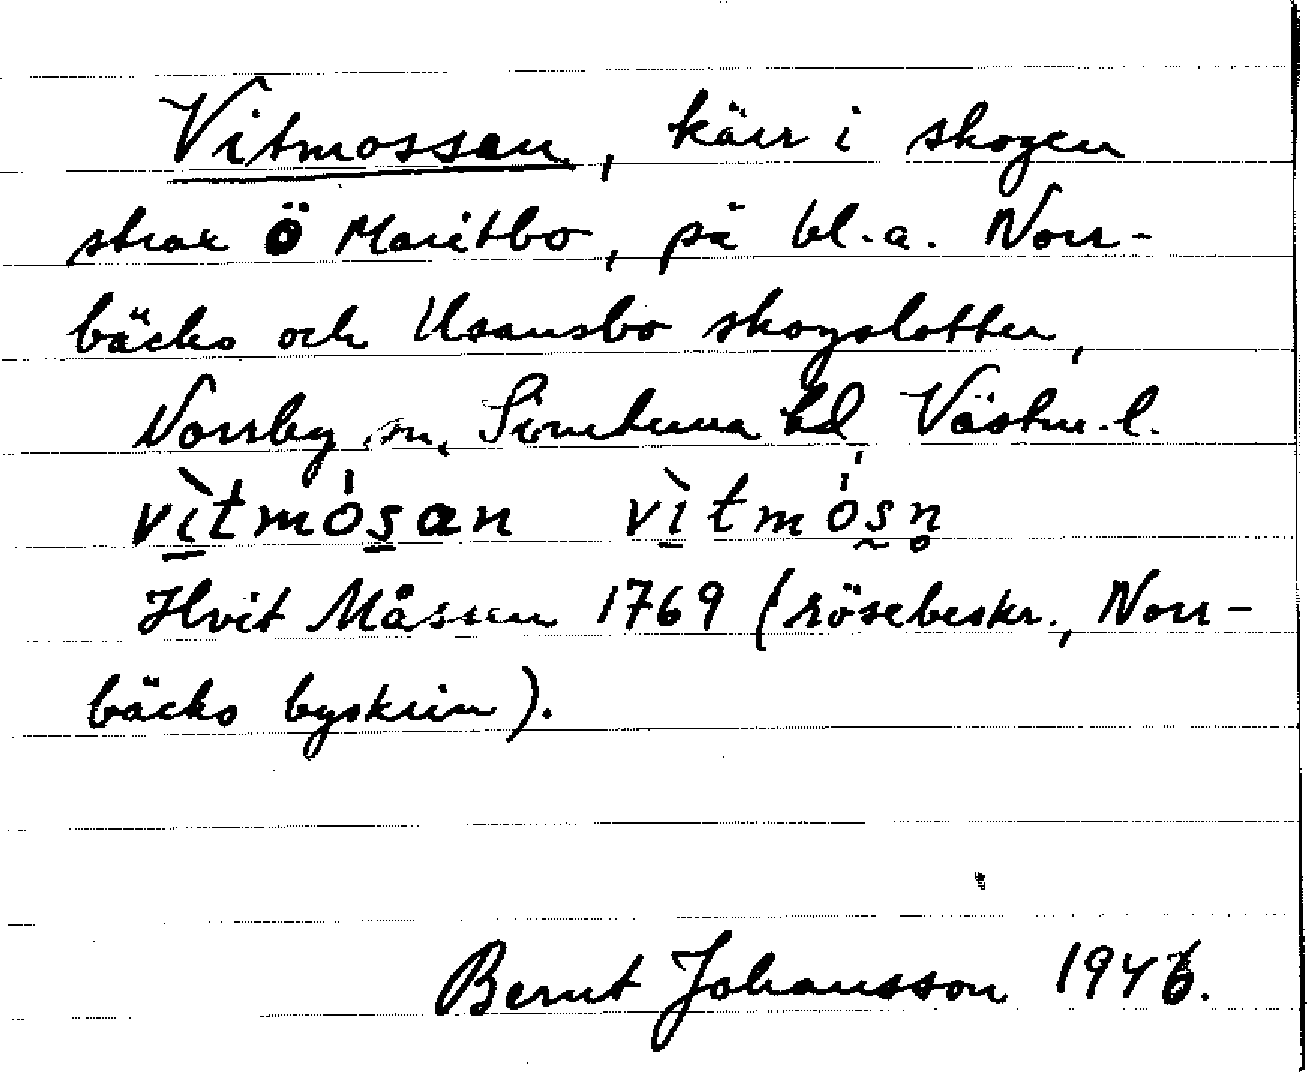 Vitmossen, kärr i skogen
strax Ö Maritbo, på bl.a. Norr-
bäcks och Usansbo skogslotter,
Norrby sn, Simtuna hd, Västm. l.
vìtmósan vìtmósn̥
Hvit Måssen 1769 (rösebeskr., Norr-
bäcks byskrin).
Bernt Johansson 1946.